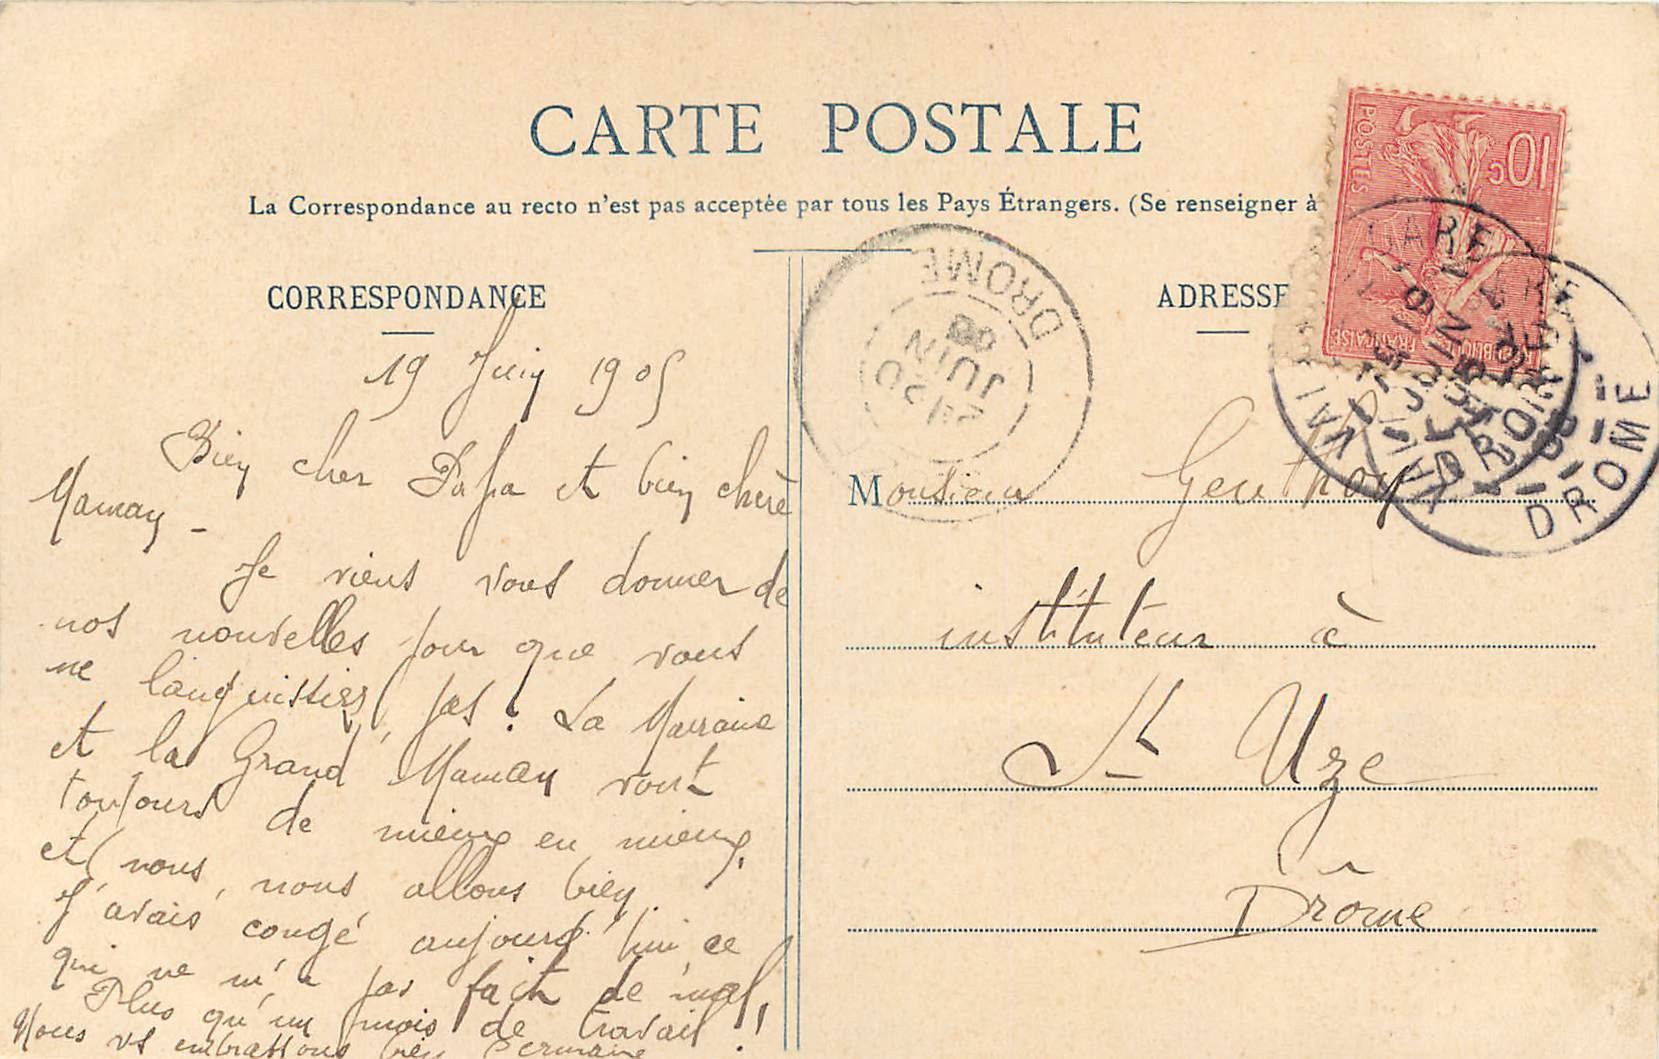 CARTE POSTALE
La Correspondance au recto n'est pas acceptée par tous les Pays Étrangers. (Se renseigner à
CORRESPONDANCE
19 Juin 1905
Bien cher Papa et bien chère
Maman -
Je viens vous donner de
nos nouvelles pour que vous
ne languissiez pas. La Marraine
et la Grand Maman vont
toujours de mieux en mieux,
et nous, nous allons bien.
J'avais congé aujourd'hui, ce
qui ne m'a pas fait de mal!
Plus qu'un mois de travail!
Nous vs embrassons bien Germaine
ADRESSE
Monsieur Genthon
instituteur à
St Uze
Drôme
10c
POSTES
REPUBLIQUE FRANÇAISE
DROME
20
JUIN
DROME